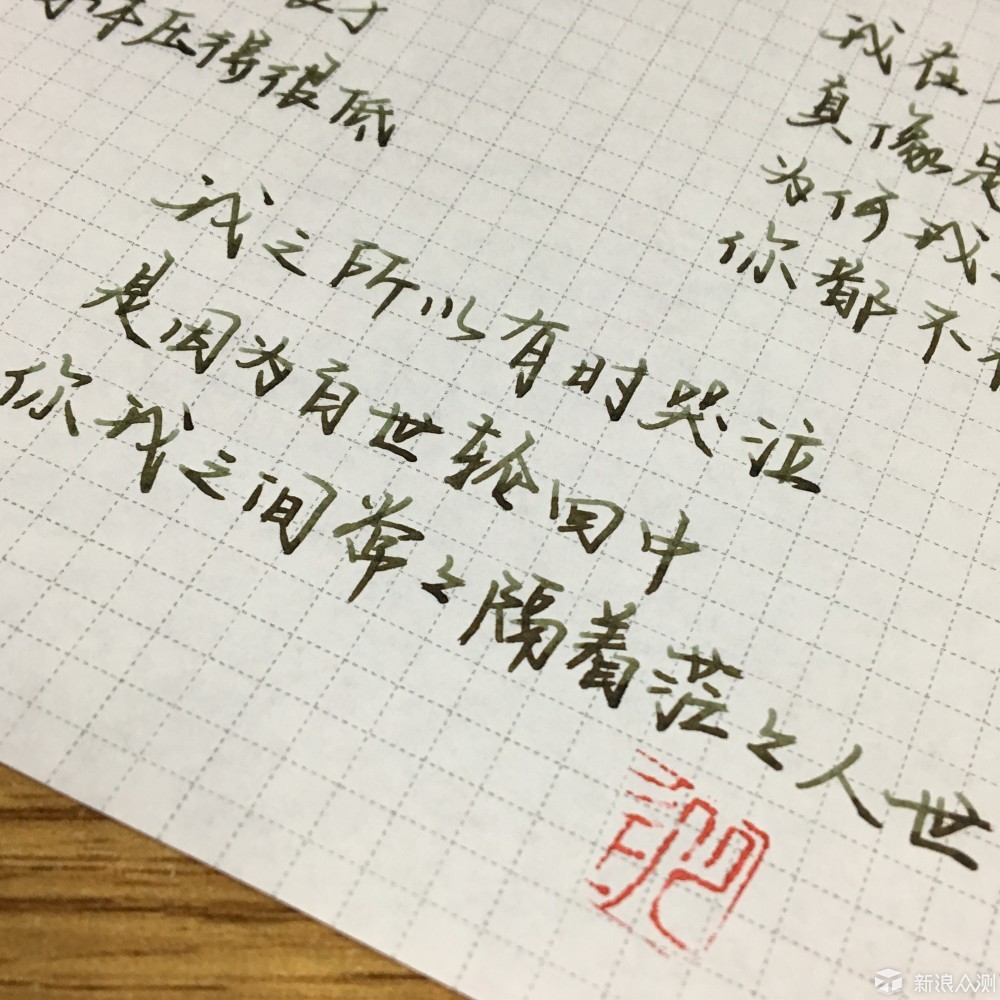 体压得很低
我之所以有时哭泣
是因为百世轮回中
你我之间常々隔着茫々人世
我在
真像是
为何我
你都不
新浪众测